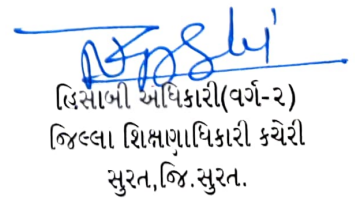 હિસાબી અધિકારી(વર્ગ-૨)
જિલ્લા શિક્ષણાધિકારી કચેરી
સુરત,જિ.સુરત.